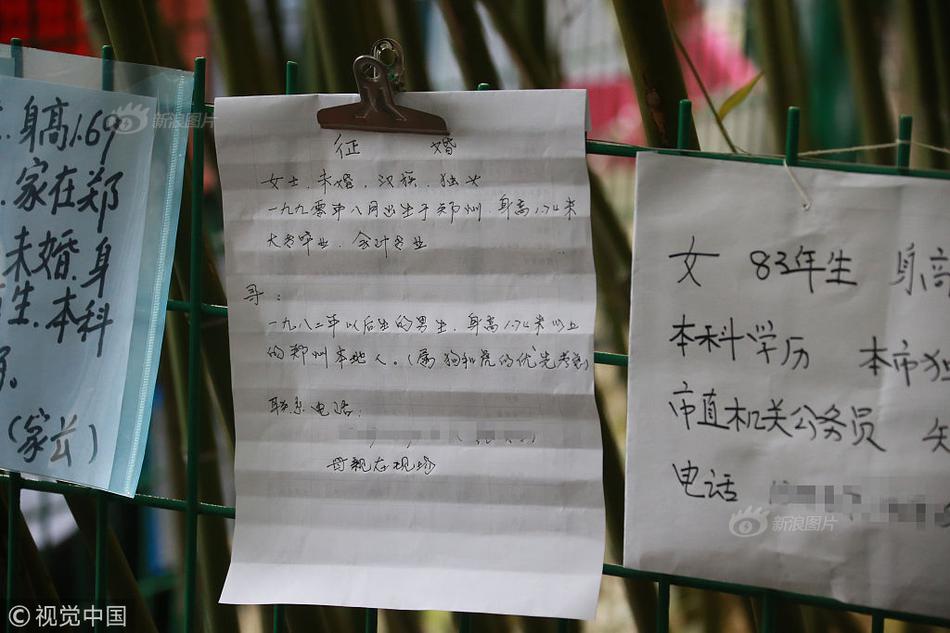 身高1.69
家在郑
未婚.身
生.本科
(家长)
征 婚
女士.未婚.汉族.独女
一九九零年八月出生于郑州.身高1.74米
大学毕业.会计专业
寻：
一九八二年以后生的男生.身高1.74米以上
的郑州本地人。(属狗和虎的优先考虑)
联系电话：
母亲在现场
女 83年生 身高
本科学历 本市独
市直机关公务员
电话
新浪图片
新浪图片
©视觉中国